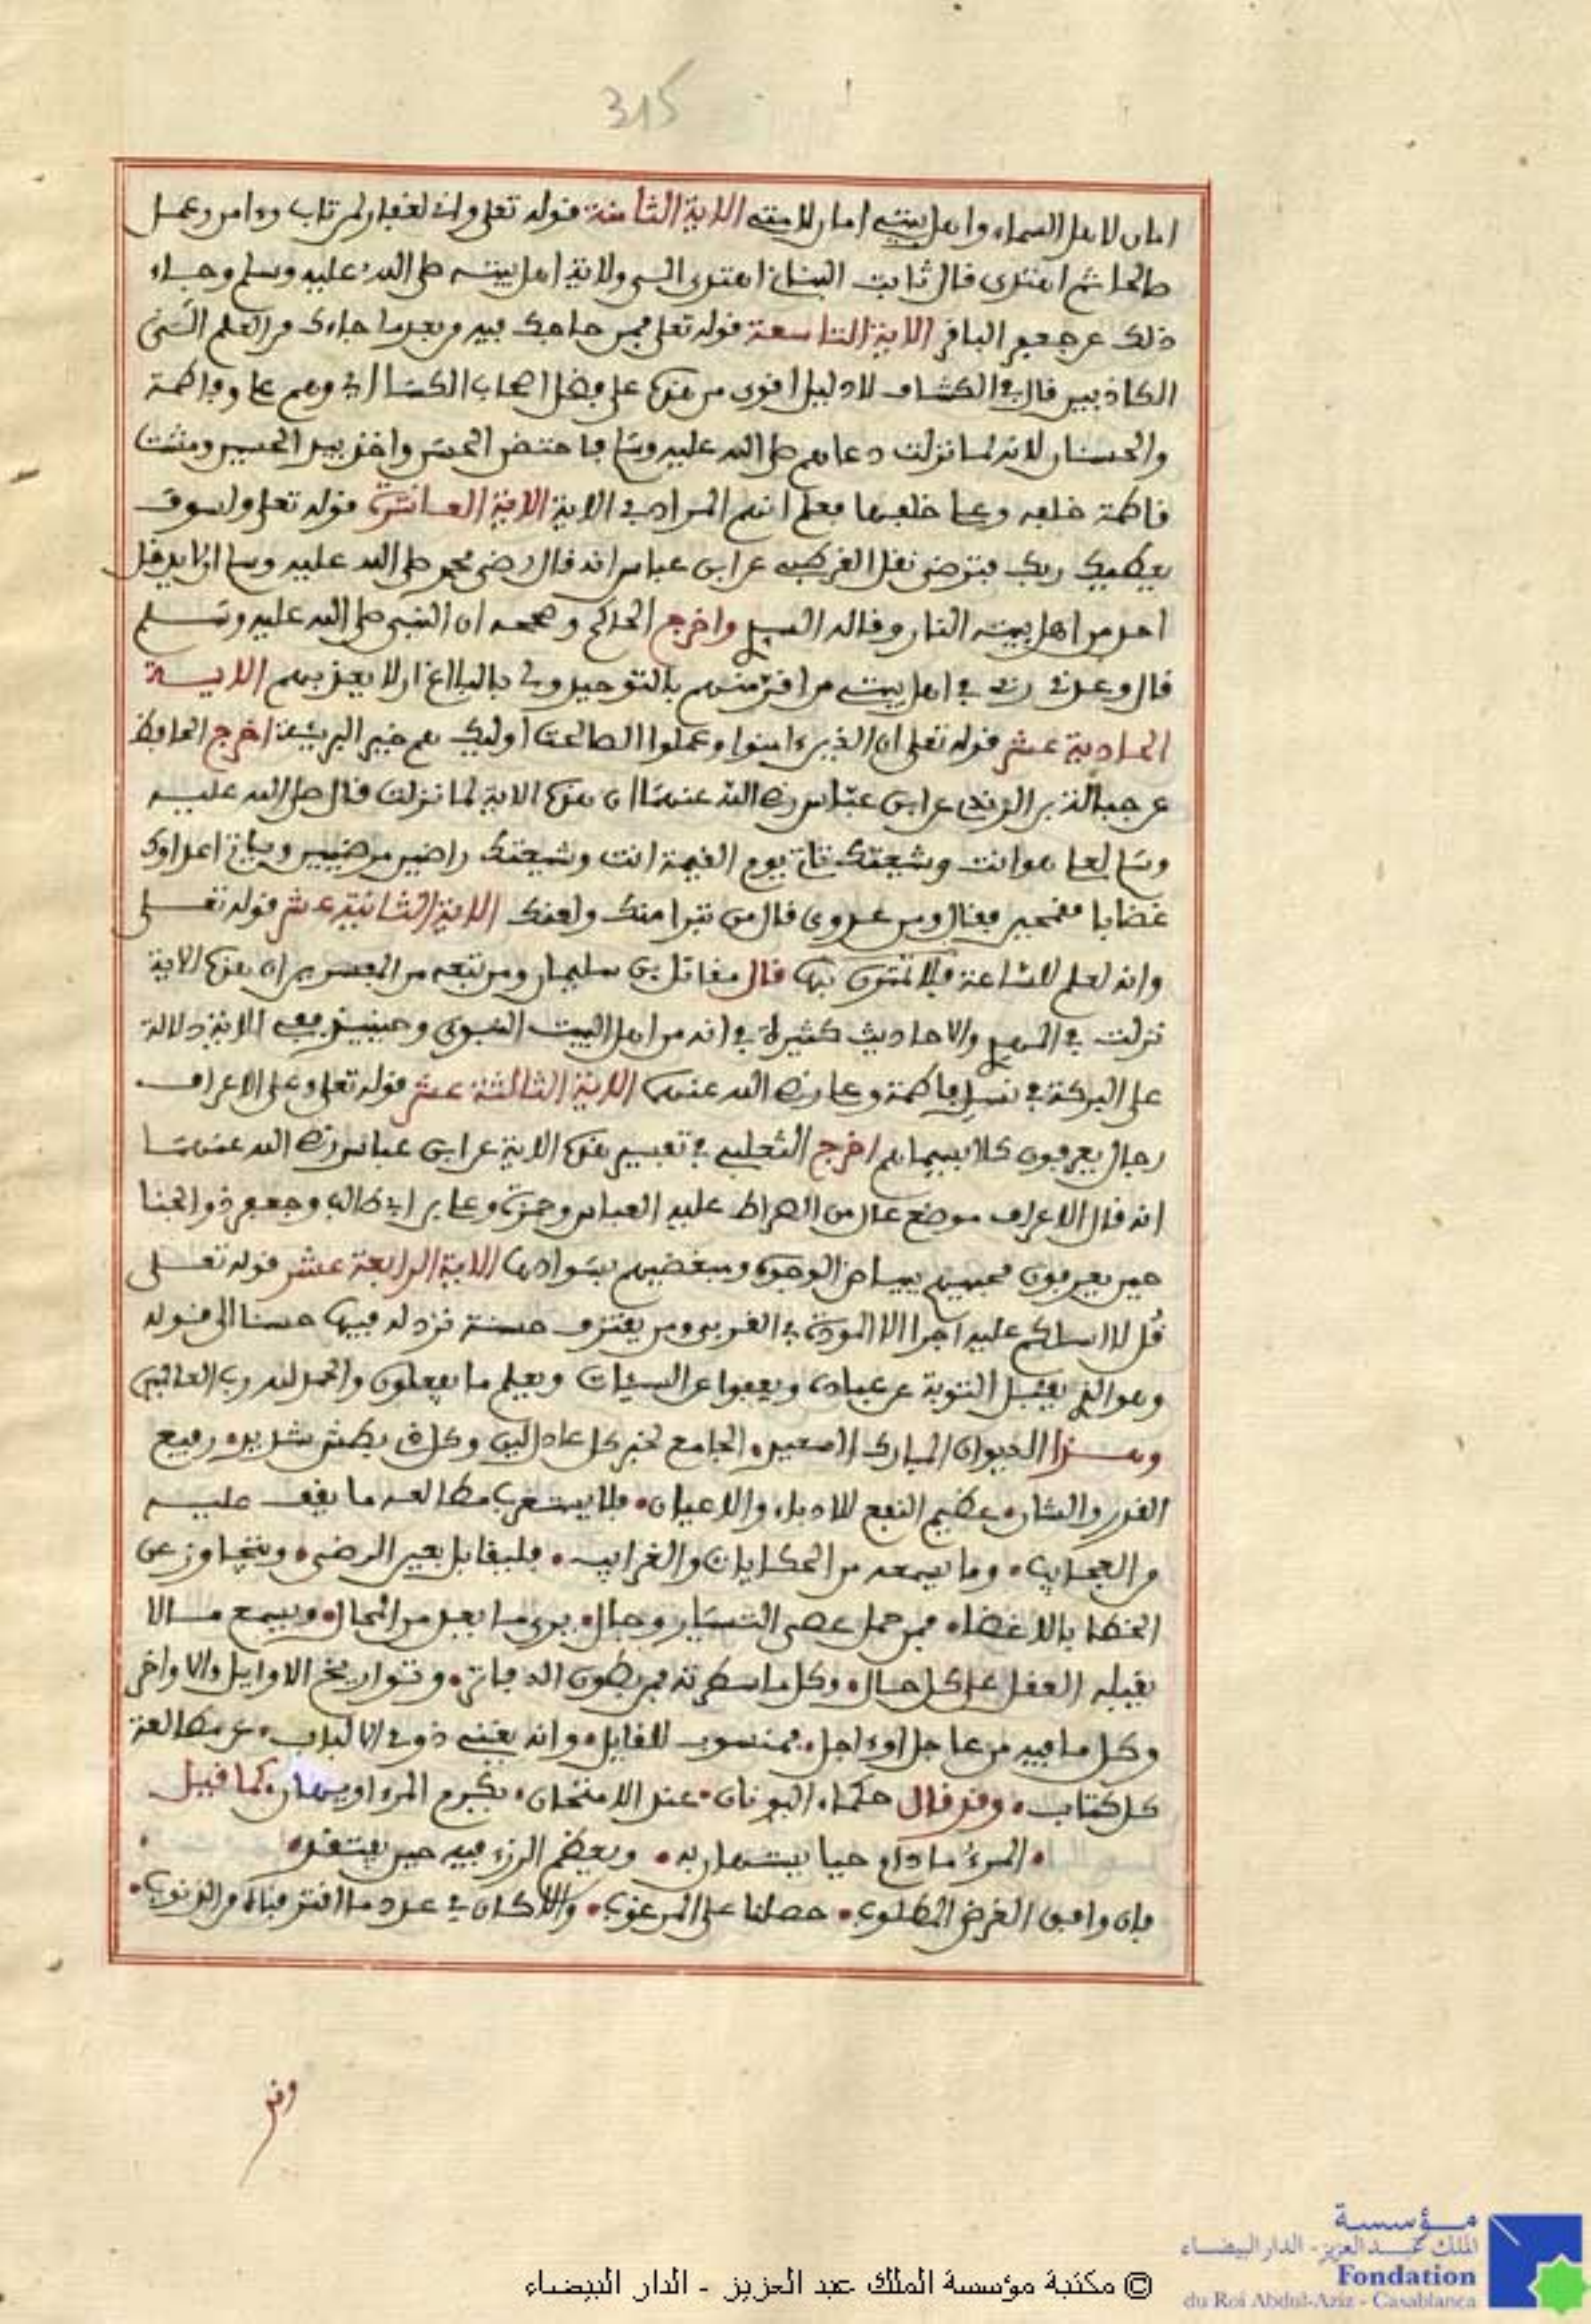 315
امان لاهل السماء واهل بيتي امان لامتي الاية الثامنة قوله تعلى واني لغفار لمن تاب وءامن وعمل
صالحا ثم اهتدى قال ثابت البناني اهتدى الى ولاية اهل بيته صلى الله عليه وسلم وجاء
ذلك عن جعفر الباقر الاية التاسعة قوله تعلى فمن حاجك فيه من بعد ما جاءك من العلم الى
الكاذبين قال في الكشاف لا دليل اقوى من هذا على فضل اصحاب الكساء وهم علي وفاطمة
والحسنان لانه لما نزلت دعاهم صلى الله عليه وسلم فاحتضن الحسن واخذ بيد الحسين ومشت
فاطمة خلفه وعلي خلفها فعلم انهم المراد في الاية الاية العاشرة قوله تعلى ولسوف
يعطيك ربك فترضى نقل القرطبي عن ابن عباس انه قال رضى محمد صلى الله عليه وسلم ان لا يدخل
احد من اهل بيته النار وقاله السدي واخرج الحاكم وصححه ان النبي صلى الله عليه وسلم
قال وعدني ربي في اهل بيتي من اقر منهم بالتوحيد ولي بالبلاغ ان لا يعذبهم الاية
الحادية عشر قوله تعلى ان الذين ءامنوا وعملوا الصالحت اوليك هم خير البريئة اخرج الحافظ
عن جمال الدين الزرندي عن ابن عباس رضي الله عنهما ان هذه الاية لما نزلت قال صلى الله عليه
وسلم لعلي هو انت وشيعتك تاتي يوم القيمة انت وشيعتك راضين مرضيين وياتي اعداوك
غضابا مقمحين فقال ومن عدوي قال من تبرا منك ولعنك الاية الثانية عشر قوله تعلى
وانه لعلم للساعة فلا تمترن بها قال مقاتل بن سليمان ومن تبعه من المفسرين ان هذه الاية
نزلت في المهدي والاحاديث كثيرة في انه من اهل البيت النبوي وحينيذ ففي الاية دلالة
على البركة في نسل فاطمة وعلي رضي الله عنهما الاية الثالثة عشر قوله تعلى وعلى الاعراف
رجال يعرفون كلا بسيماهم اخرج الثعلبي في تفسير هذه الاية عن ابن عباس رضي الله عنهما
انه قال الاعراف موضع عال من الصراط عليه العباس وحمزة وعلي بن ابي طالب وجعفر ذو الجنا
حين يعرفون محبيهم ببياض الوجوه ومبغضيهم بسوادها الاية الرابعة عشر قوله تعلى
قل لا اسالكم عليه اجرا الا المودة في القربى ومن يقترف حسنة نزد له فيها حسنا الى قوله
وهو الذي يقبل التوبة عن عباده ويعفوا عن السيئات ويعلم ما يفعلون والحمد لله رب العالمين
وهذا الديوان المبارك السعيد، الجامع لخبر كل عادل لين وكل ذي بطش شديد، رفيع
القدر والشان، عظيم النفع للادباء والاعيان، فلا يستغرب مطالعه ما يقف عليه
من العجايب، وما يسمعه من الحكايات والغرايب، فليقابل بعين الرضى، ويتجاوز عن
الخطا بالاغضاء فمن حمل عصى التسيار وجال، يرى ما يعد من المحال، ويسمع ما لا
يقبله العقل على كل حال، وكل ما سطرته فمن بطون الدفاتر، وتواريخ الاوايل والاواخر
وكل ما فيه من عاجل او ءاجل، فمنسوب للقايل، وانه يغني ذوي الالباب، عن مطالعة
كل كتاب، وقد قال حكماء اليونان، عند الامتحان، يكرم المرء او يهان، كما قيل
المرء ما دام حيا يستهان به، ويعظم الرزء فيه حين يفتقد،
فان وافق الغرض المطلوب، حصلنا على المرغوب، والا كان في عدد ما اقترفناه من الذنوب،
وقد
© مكتبة مؤسسة الملك عبد العزيز - الدار البيضاء
مؤسسة
الملك عبد العزيز - الدار البيضاء
Fondation
du Roi Abdul-Aziz - Casablanca